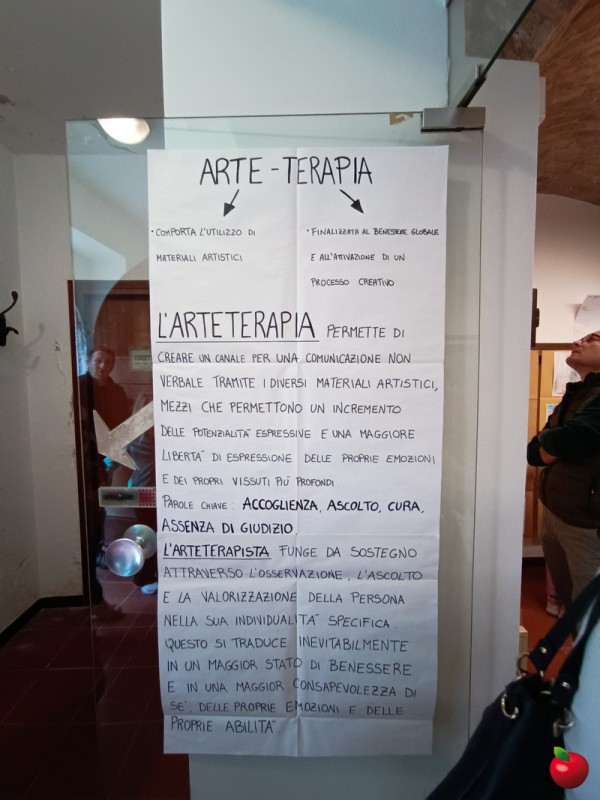 ARTE-TERAPIA
· COMPORTA L'UTILIZZO DI
MATERIALI ARTISTICI
· FINALIZZATA AL BENESSERE GLOBALE
E ALL'ATTIVAZIONE DI UN
PROCESSO CREATIVO
L'ARTETERAPIA PERMETTE DI
CREARE UN CANALE PER UNA COMUNICAZIONE NON
VERBALE TRAMITE I DIVERSI MATERIALI ARTISTICI,
MEZZI CHE PERMETTONO UN INCREMENTO
DELLE POTENZIALITA' ESPRESSIVE E UNA MAGGIORE
LIBERTA' DI ESPRESSIONE DELLE PROPRIE EMOZIONI
E DEI PROPRI VISSUTI PIU' PROFONDI.
PAROLE CHIAVE: ACCOGLIENZA, ASCOLTO, CURA,
ASSENZA DI GIUDIZIO
L'ARTETERAPISTA FUNGE DA SOSTEGNO
ATTRAVERSO L'OSSERVAZIONE, L'ASCOLTO
E LA VALORIZZAZIONE DELLA PERSONA
NELLA SUA INDIVIDUALITA' SPECIFICA.
QUESTO SI TRADUCE INEVITABILMENTE
IN UN MAGGIOR STATO DI BENESSERE
E IN UNA MAGGIOR CONSAPEVOLEZZA DI
SE', DELLE PROPRIE EMOZIONI E DELLE
PROPRIE ABILITA'.